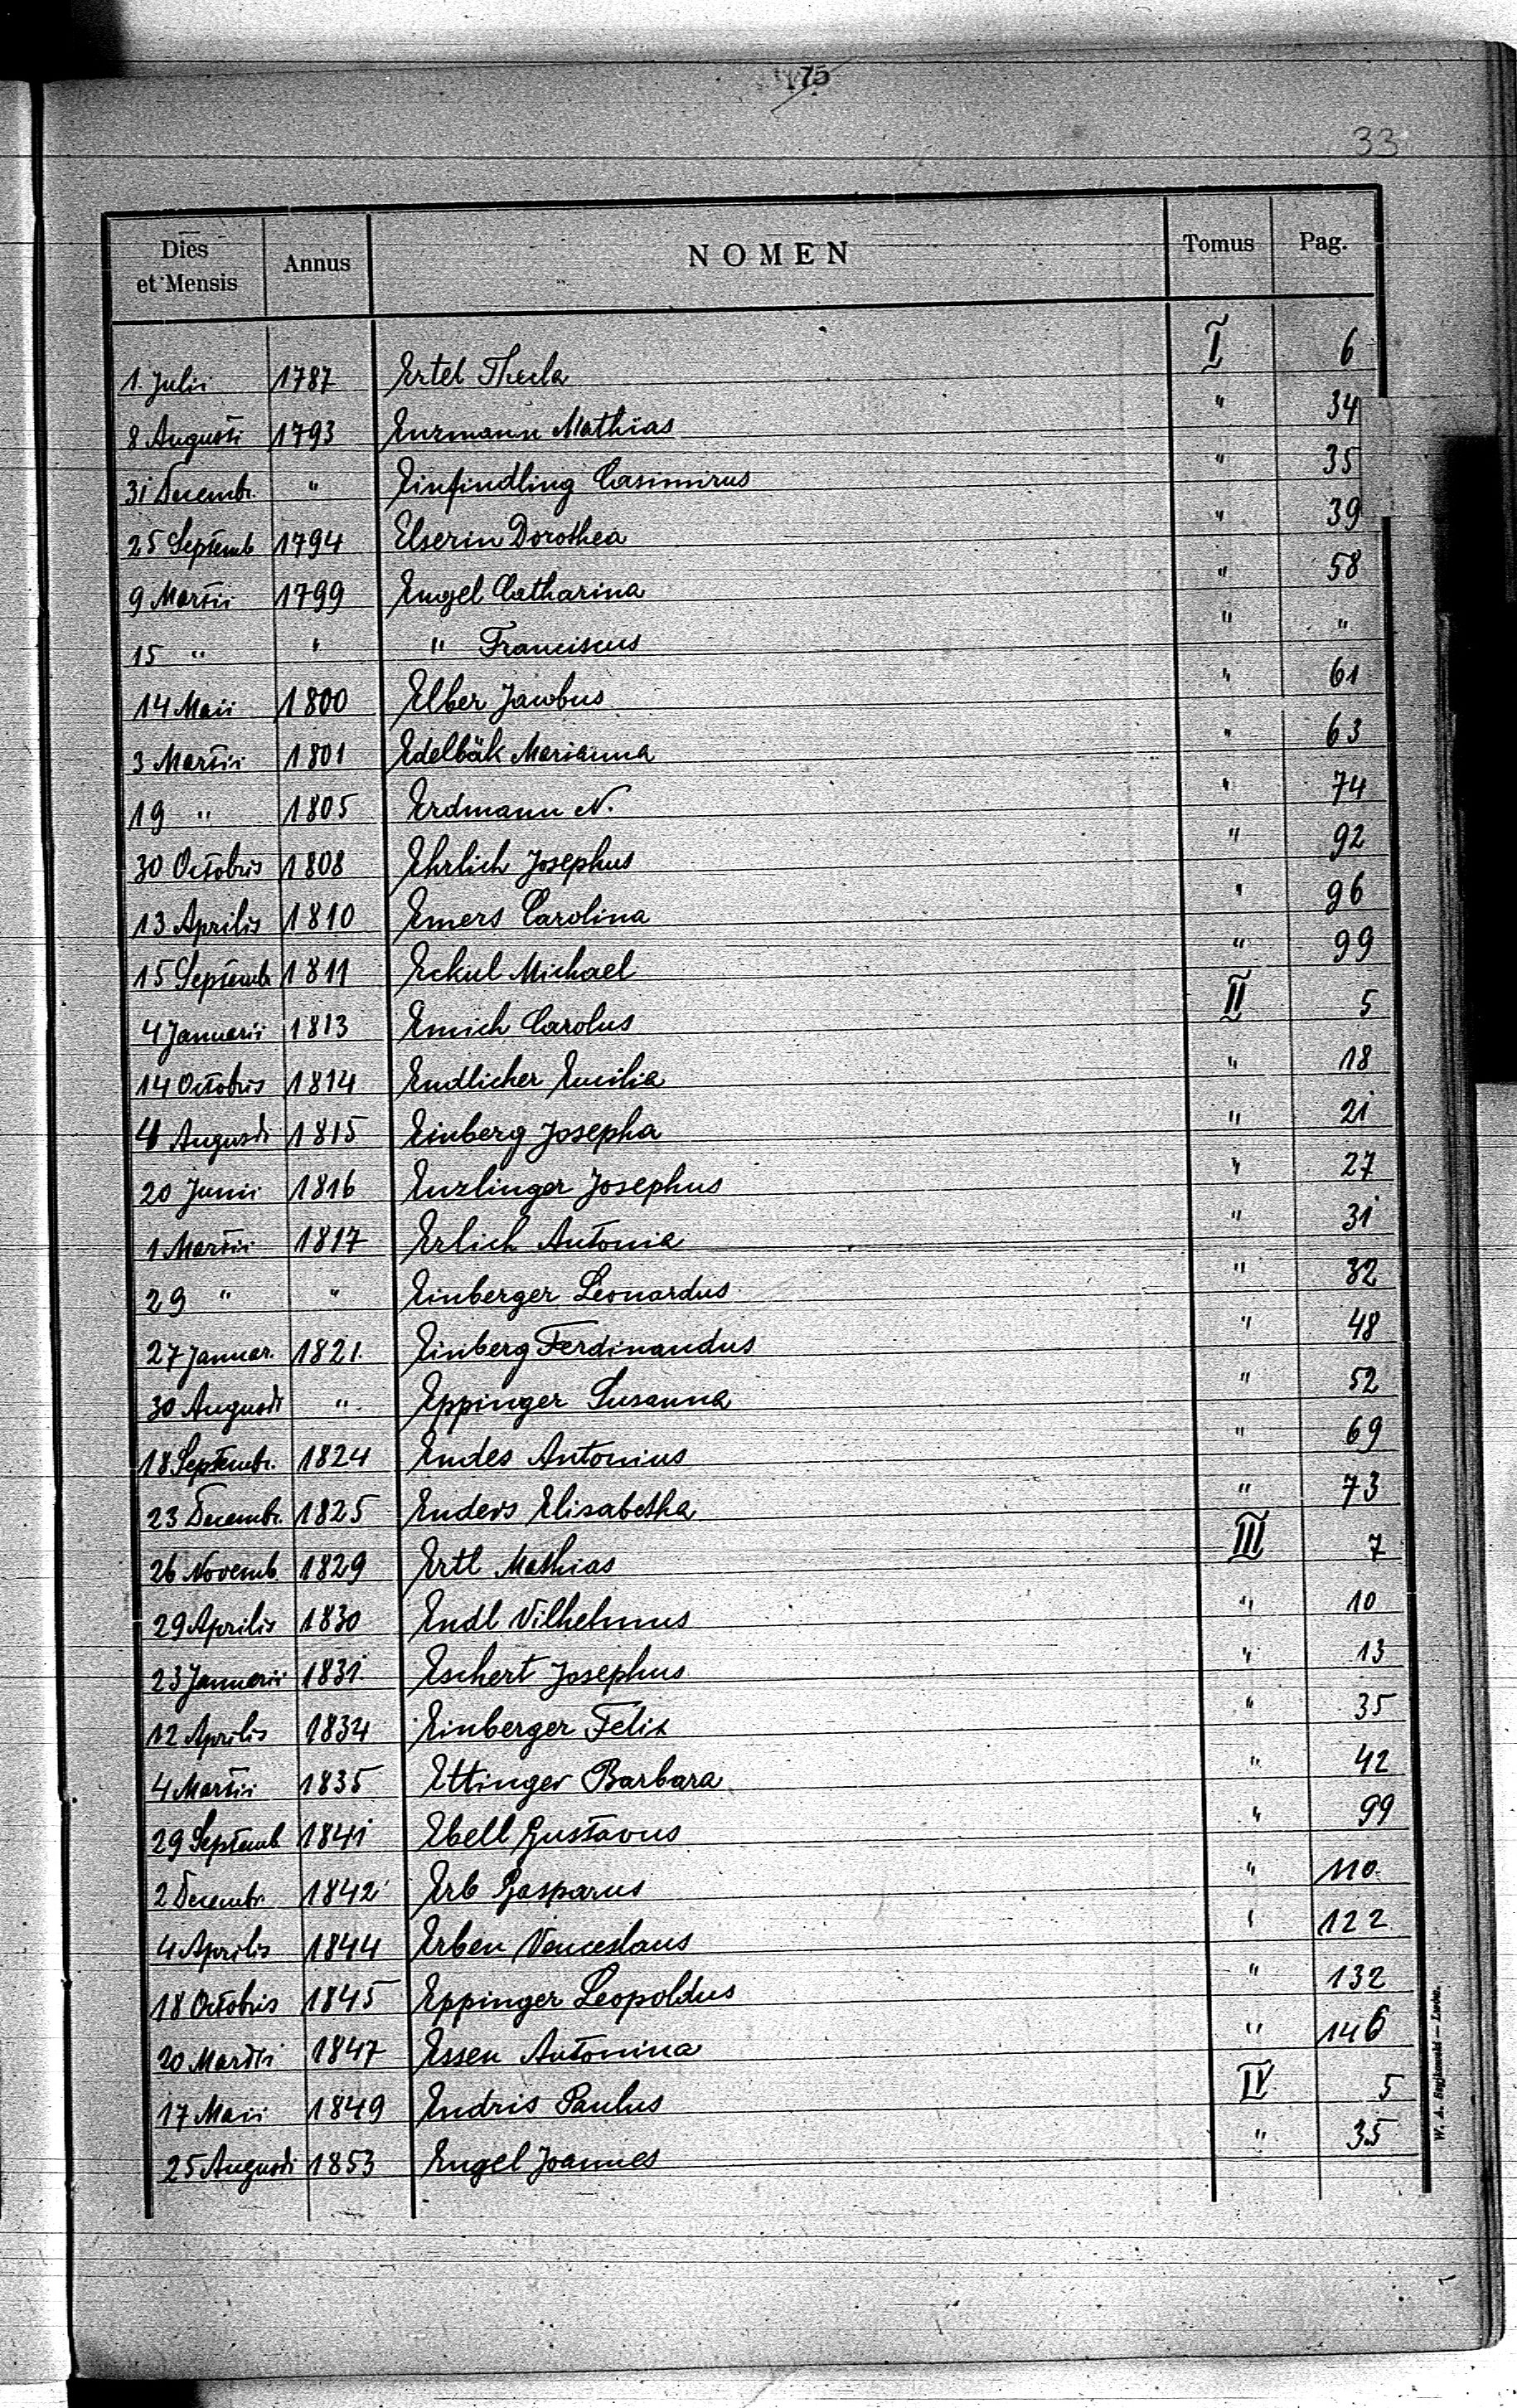 175
33
Dies et Mensis Annus NOMEN Tomus Pag.
1. Julii 1787 Ertel Thecla I 6
8 Augusti 1793 Enzmann Mathias " 34
31 Decembr. " Einfindling Casimirus " 35
25 Septemb 1794 Elserin Dorothea " 39
9 Martii 1799 Engel Catharina " 58
15 " " " Franciscus " "
14 Maii 1800 Elber Jacobus " 61
3 Martii 1801 Edelbäk Marianna " 63
19 " 1805 Erdmann N. " 74
30 Octobris 1808 Ehrlich Josephus " 92
13 Aprilis 1810 Emers Carolina " 96
15 Septemb 1811 Eckul Michael " 99
4 Januarii 1813 Emich Carolus II 5
14 Octobris 1814 Endlicher Emilia " 18
4 Augusti 1815 Einberg Josepha " 21
20 Junii 1816 Enzlinger Josephus " 27
1 Martii 1817 Erlich Antonia " 31
29 " " Einberger Leonardus " 32
27 Januar. 1821. Einberg Ferdinandus " 48
30 Augusti " Eppinger Susanna " 52
18 Septembr. 1824 Endes Antonius " 69
23 Decembr. 1825 Enders Elisabetha " 73
26 Novemb. 1829 Ertl Mathias III 7
29 Aprilis 1830 Endl Vilhelmus " 10
23 Januarii 1831 Eschert Josephus " 13
12 Aprilis 1834 Einberger Felix " 35
4 Martii 1835 Ettinger Barbara " 42
29 Septemb 1841 Ebell Gustavus " 99
2 Decembr. 1842 Erb Gasparus " 110
4 Aprilis 1844 Erben Venceslaus " 122
18 Octobris 1845 Eppinger Leopoldus " 132
20 Martii 1847 Essen Antonina " 146
17 Maii 1849 Endris Paulus IV 5
25 Augusti 1853 Engel Joannes " 35